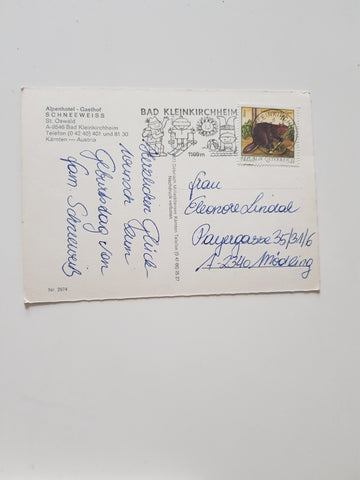 Alpenhotel - Gasthof
SCHNEEWEISS
St. Oswald
A-9546 Bad Kleinkirchheim
Telefon (0 42 40) 401 und 81 30
Kärnten — Austria
BAD KLEINKIRCHHEIM
1100m
REPUBLIK ÖSTERREICH
Herzlichen Glück
wunsch zum
Geburtstag von
Fam. Schneeweiß
Nachdruck verboten
Frau
Eleonore Lindal
Payergasse 35/31/6
A-2340 Mödling
Nr. 2974